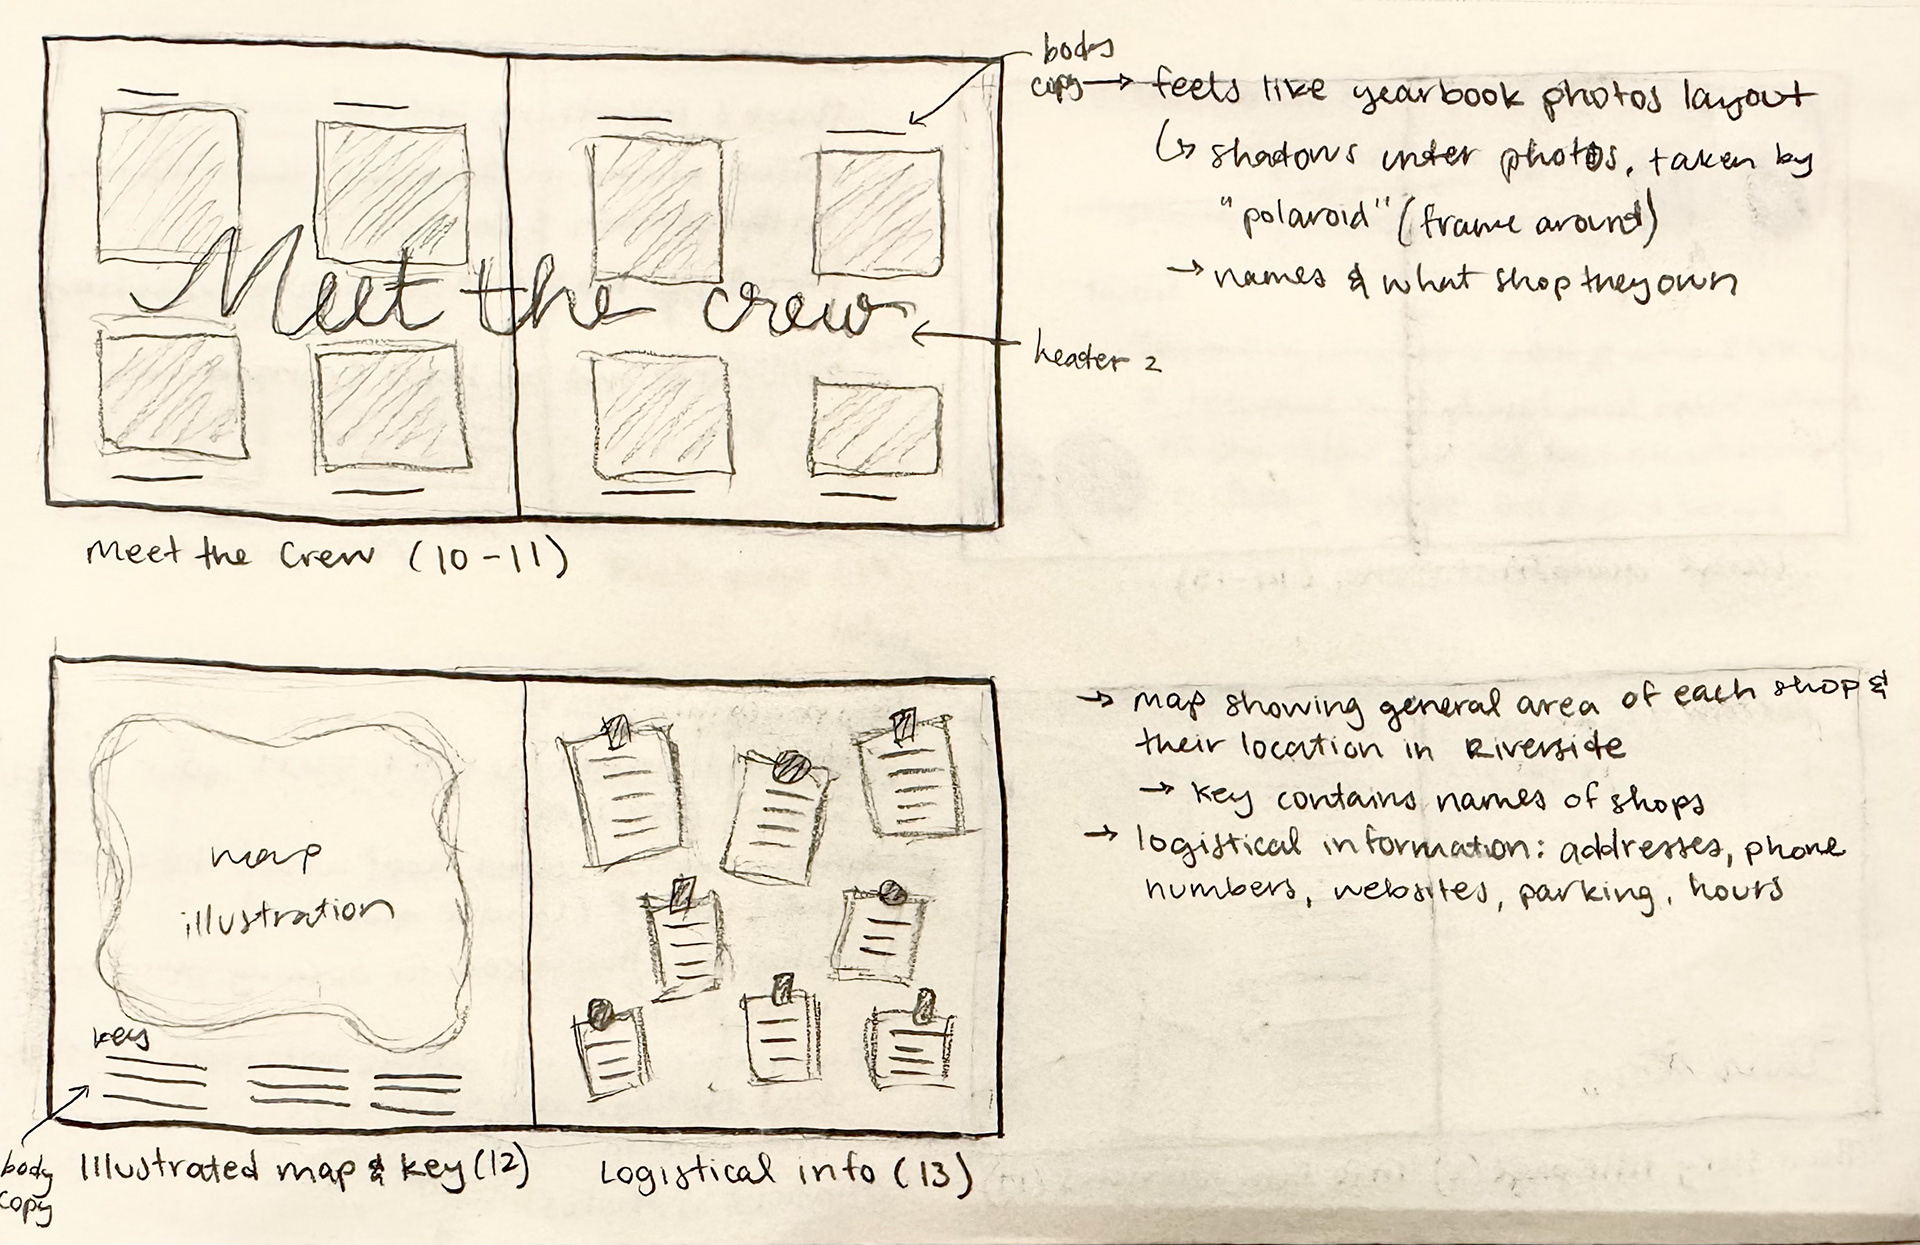 body
copy → feels like yearbook photos layout
↳ shadows under photos, taken by
"polaroid" (frame around)
→ names & what shop they own
Meet the crew
header 2
Meet the Crew (10-11)
→ map showing general area of each shop &
their location in Riverside
→ key contains names of shops
→ logistical information: addresses, phone
numbers, websites, parking, hours
map
illustration
key
body
copy
Illustrated map & key (12)
Logistical info (13)